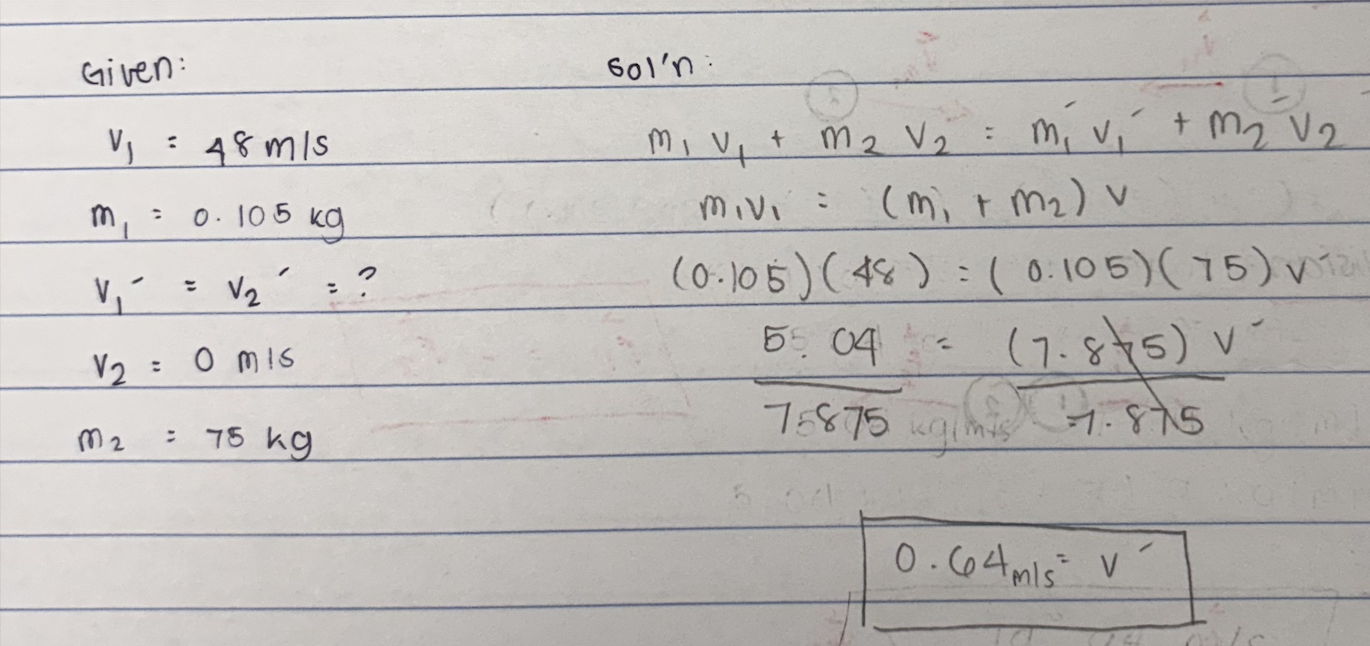 Given:
V₁ = 48 m/s
m₁ = 0.105 kg
V₁′ = V₂′ = ?
V₂ = 0 m/s
m₂ = 75 kg
Sol'n:
m₁ V₁ + m₂ V₂ = m₁′ V₁′ + m₂′ V₂′
m₁V₁ = (m₁ + m₂) V
(0.105)(48) = (0.105)(75) V′
5.04 = (7.875) V′
75875 7.875
0.64 m/s = V′